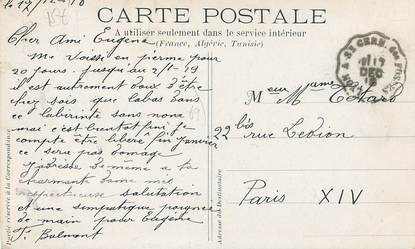 le 17/12-18
CARTE POSTALE
A utiliser seulement dans le service intérieur
(France, Algérie, Tunisie)
Cher Ami Eugène
Me Voissi en perme pour
20 jours. jusqu'au 2/1-19
il est autrement doux d'être
chez sois que labas dans
ce labirinte sans nom
mai c'est bientot fini je
compte être libéré fin Janvier
ce sera pas domage
J'adresse de même a ta
charmant dame mes
respectueuse salutation
et une sympatique poignée
de main pour Eugène
F. Balmont
Partie réservée à la Correspondance
Adresse du Destinataire
Monsieur Mme
22 bis rue Ledion
Paris XIV